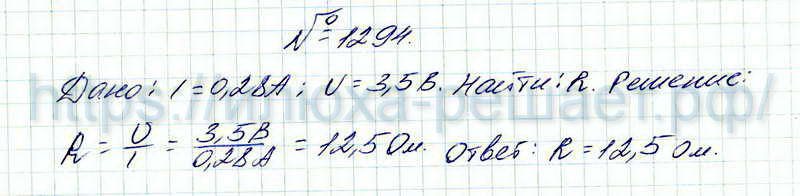 № 1294.
Дано: I = 0,28А; U = 3,5В. Найти: R. Решение:
R = U/I = 3,5В/0,28А = 12,5 Ом. Ответ: R = 12,5 Ом.
https://initoxa-решает.рф/